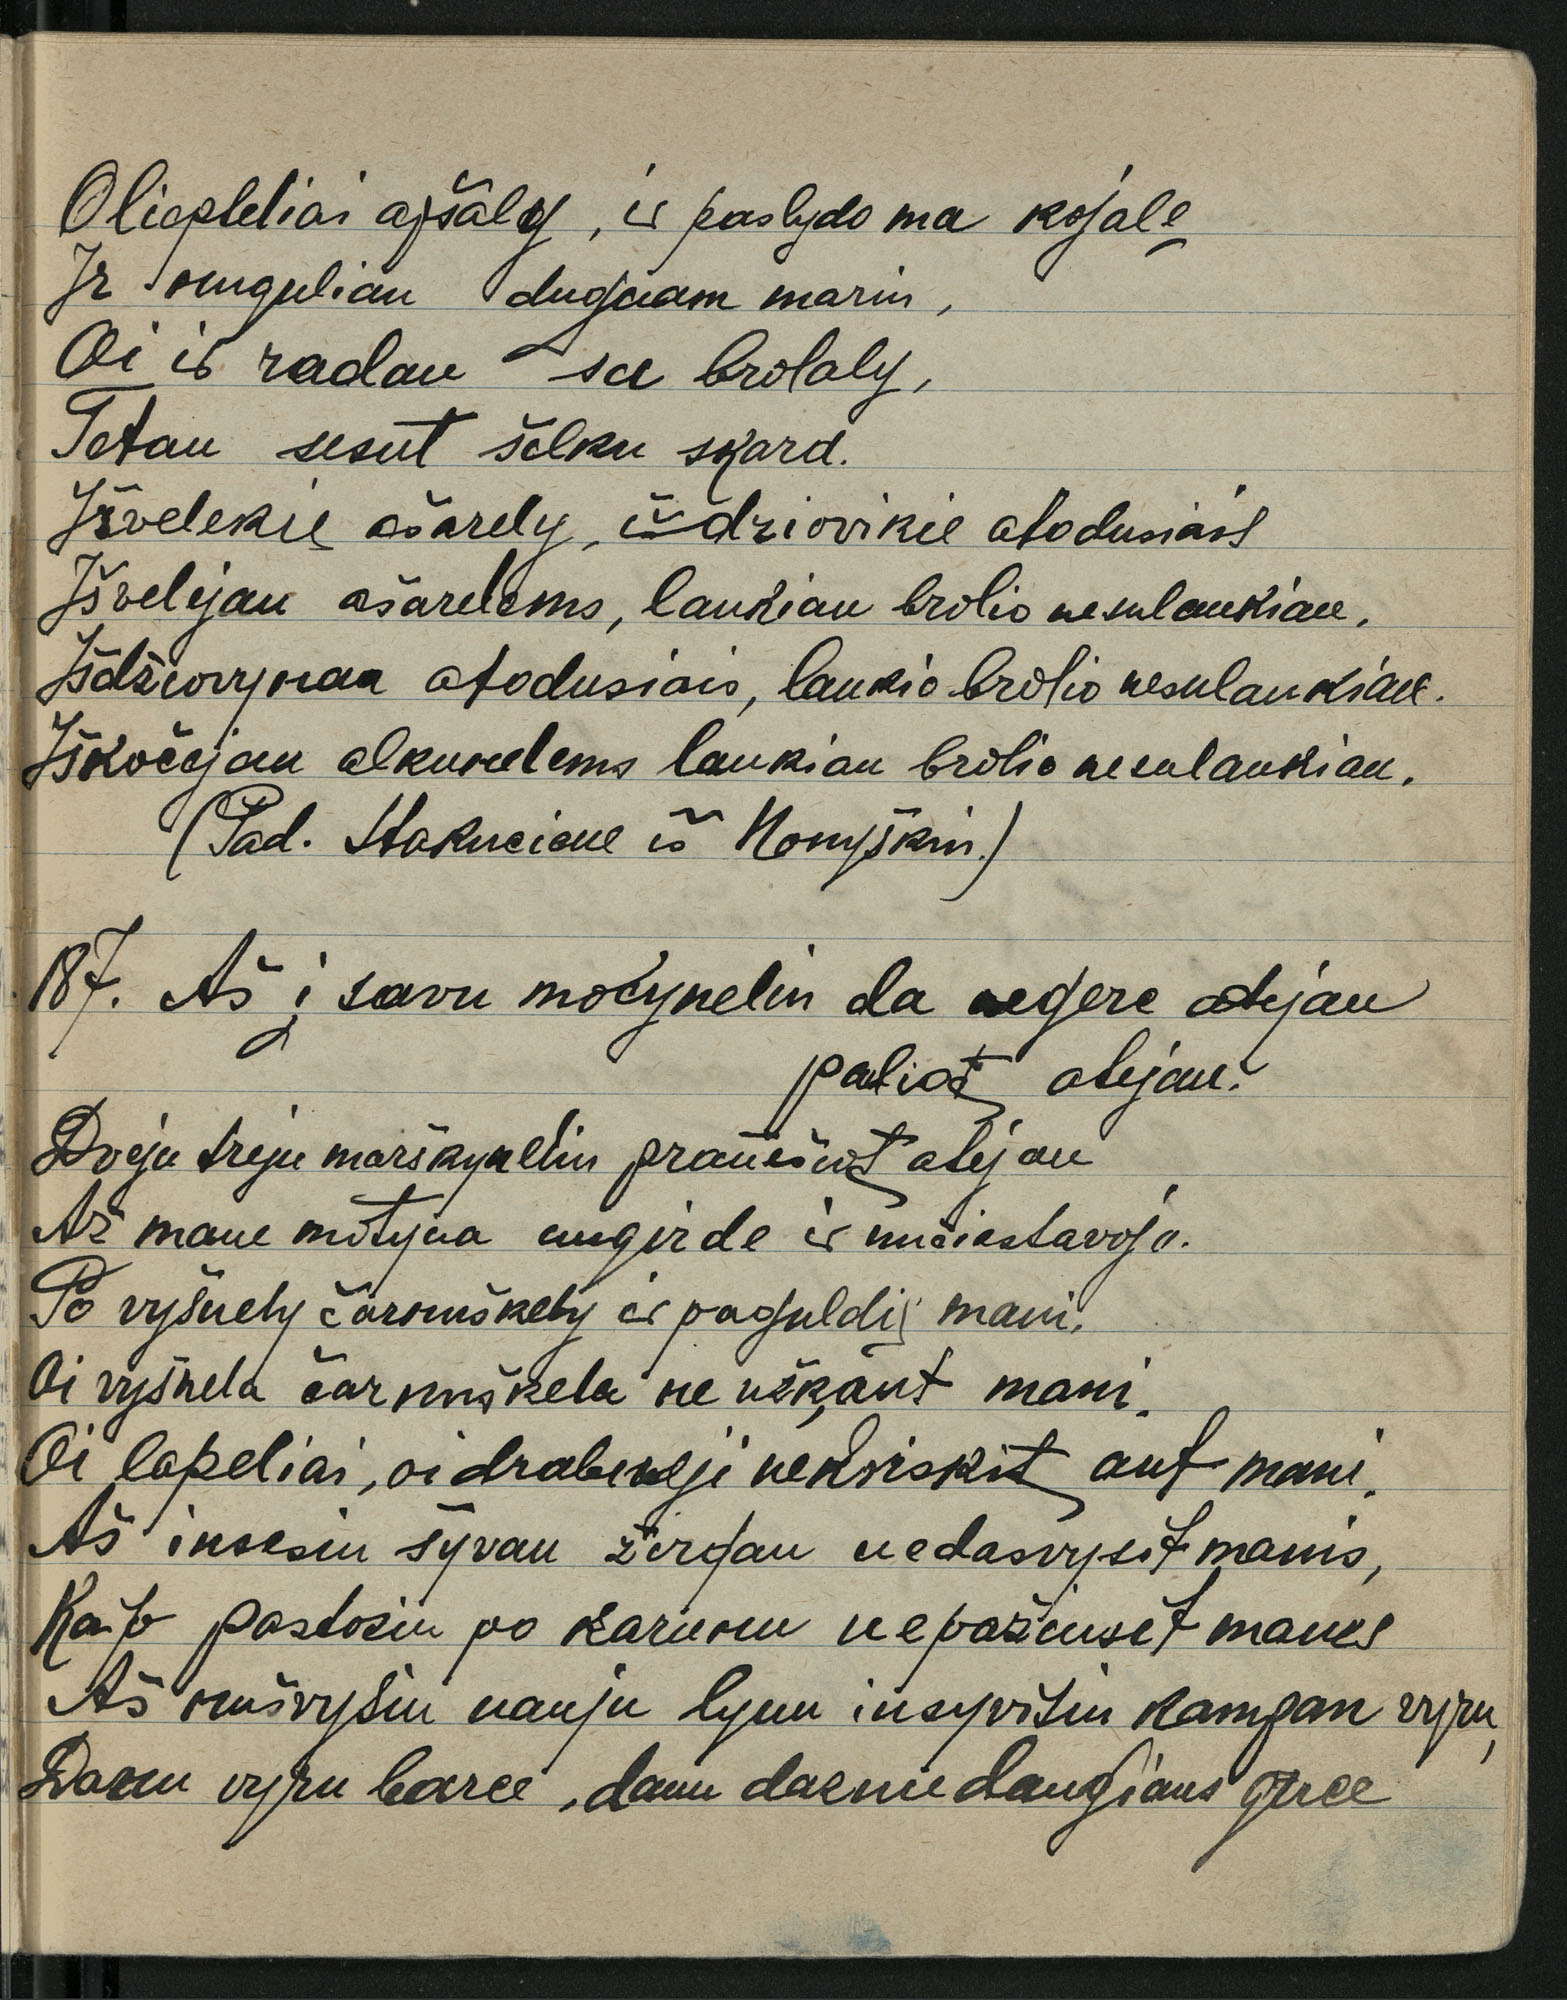 Oliepteliai apšaly, ir paslydo ma kojale
Ir nugulian dugnam marin,
Oi ir radau sa brolaly,
Tetau sesut šilku skard.
Išvelekie ašarely, išdziovikie atodusiais
Išvelijau ašarelems, laukiau brolio nesulaukiau.
Išdžiovynau atodusiais, laukio brolio nesulaukiau.
Iškočojau alkunelems laukiau brolio nesulaukiau.
(Pad. Stakneiene iš Nonyškin.)
187. Aš į savu močynelin da negere atejau
paliot atejau.
Dveju treju marškynelin pranešiot atejau
Až mane motyna nugirde ir nučiestavoja.
Po vyšnely čarnuškely ir paguldį mani.
Oi vyšnela čarnuškela ne užkant mani.
Oi lapeliai, oi drabenėji nekriskit ant mani.
Aš insesiu šyvan žirgan nedasvysit manis,
Kaip pastosiu po karunu nepažinsit manes
Aš nušvysiu nauju lynu insyvisiu kampan vyru,
Davu vyru barce, davu daenu daugiaus gerce